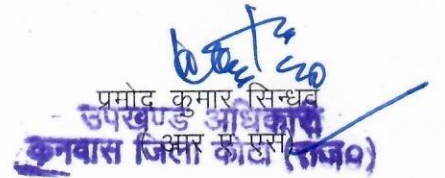 प्रमोद कुमार सिन्धव
उपखण्ड अधिकारी
(आर ए एस)
कनवास जिला कोटा (राज०)